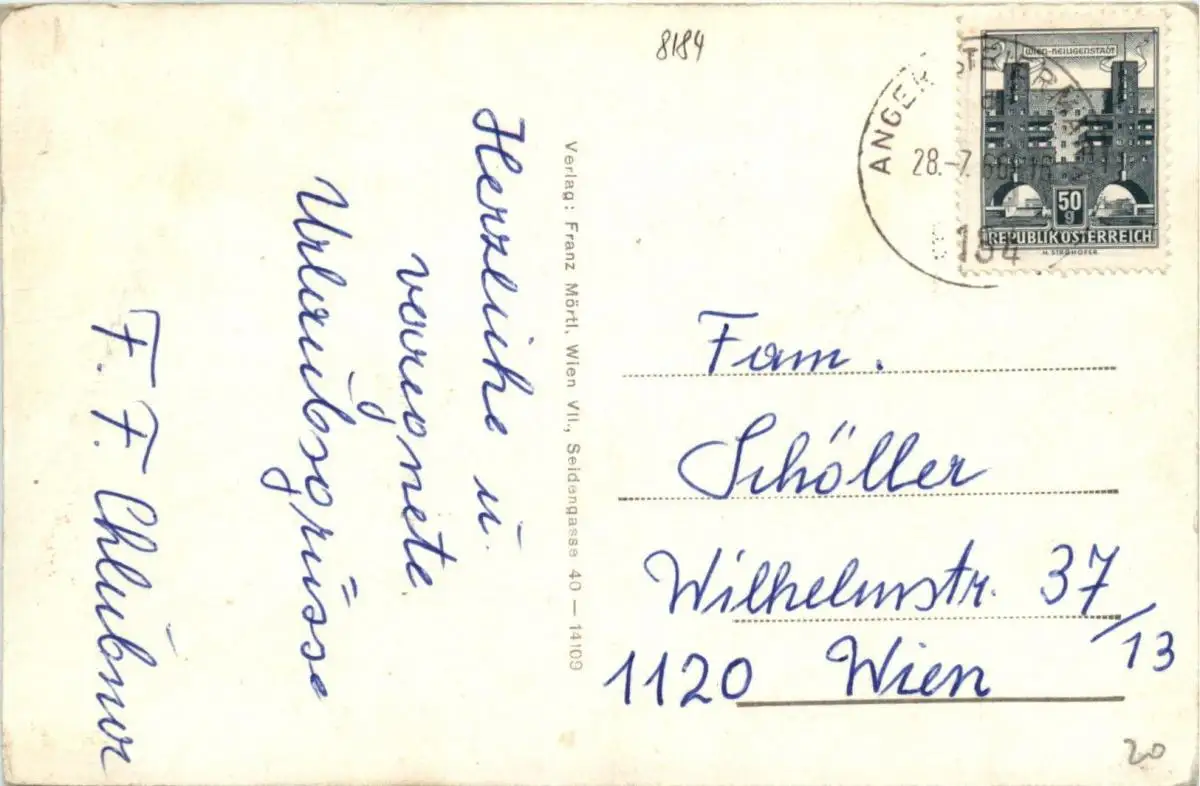 8184
Herzliche u.
verregnete
Urlaubsgrüsse
F. F. Chlubnur
Verlag: Franz Mörtl, Wien VII., Seidengasse 40 — 14109
WIEN-HEILIGENSTADT
50
g
REPUBLIK ÖSTERREICH
H. STROHOFER
ANGER
28.-7.66
8184
Fam.
Schöller
Wilhelmstr. 37
/13
1120 Wien
20